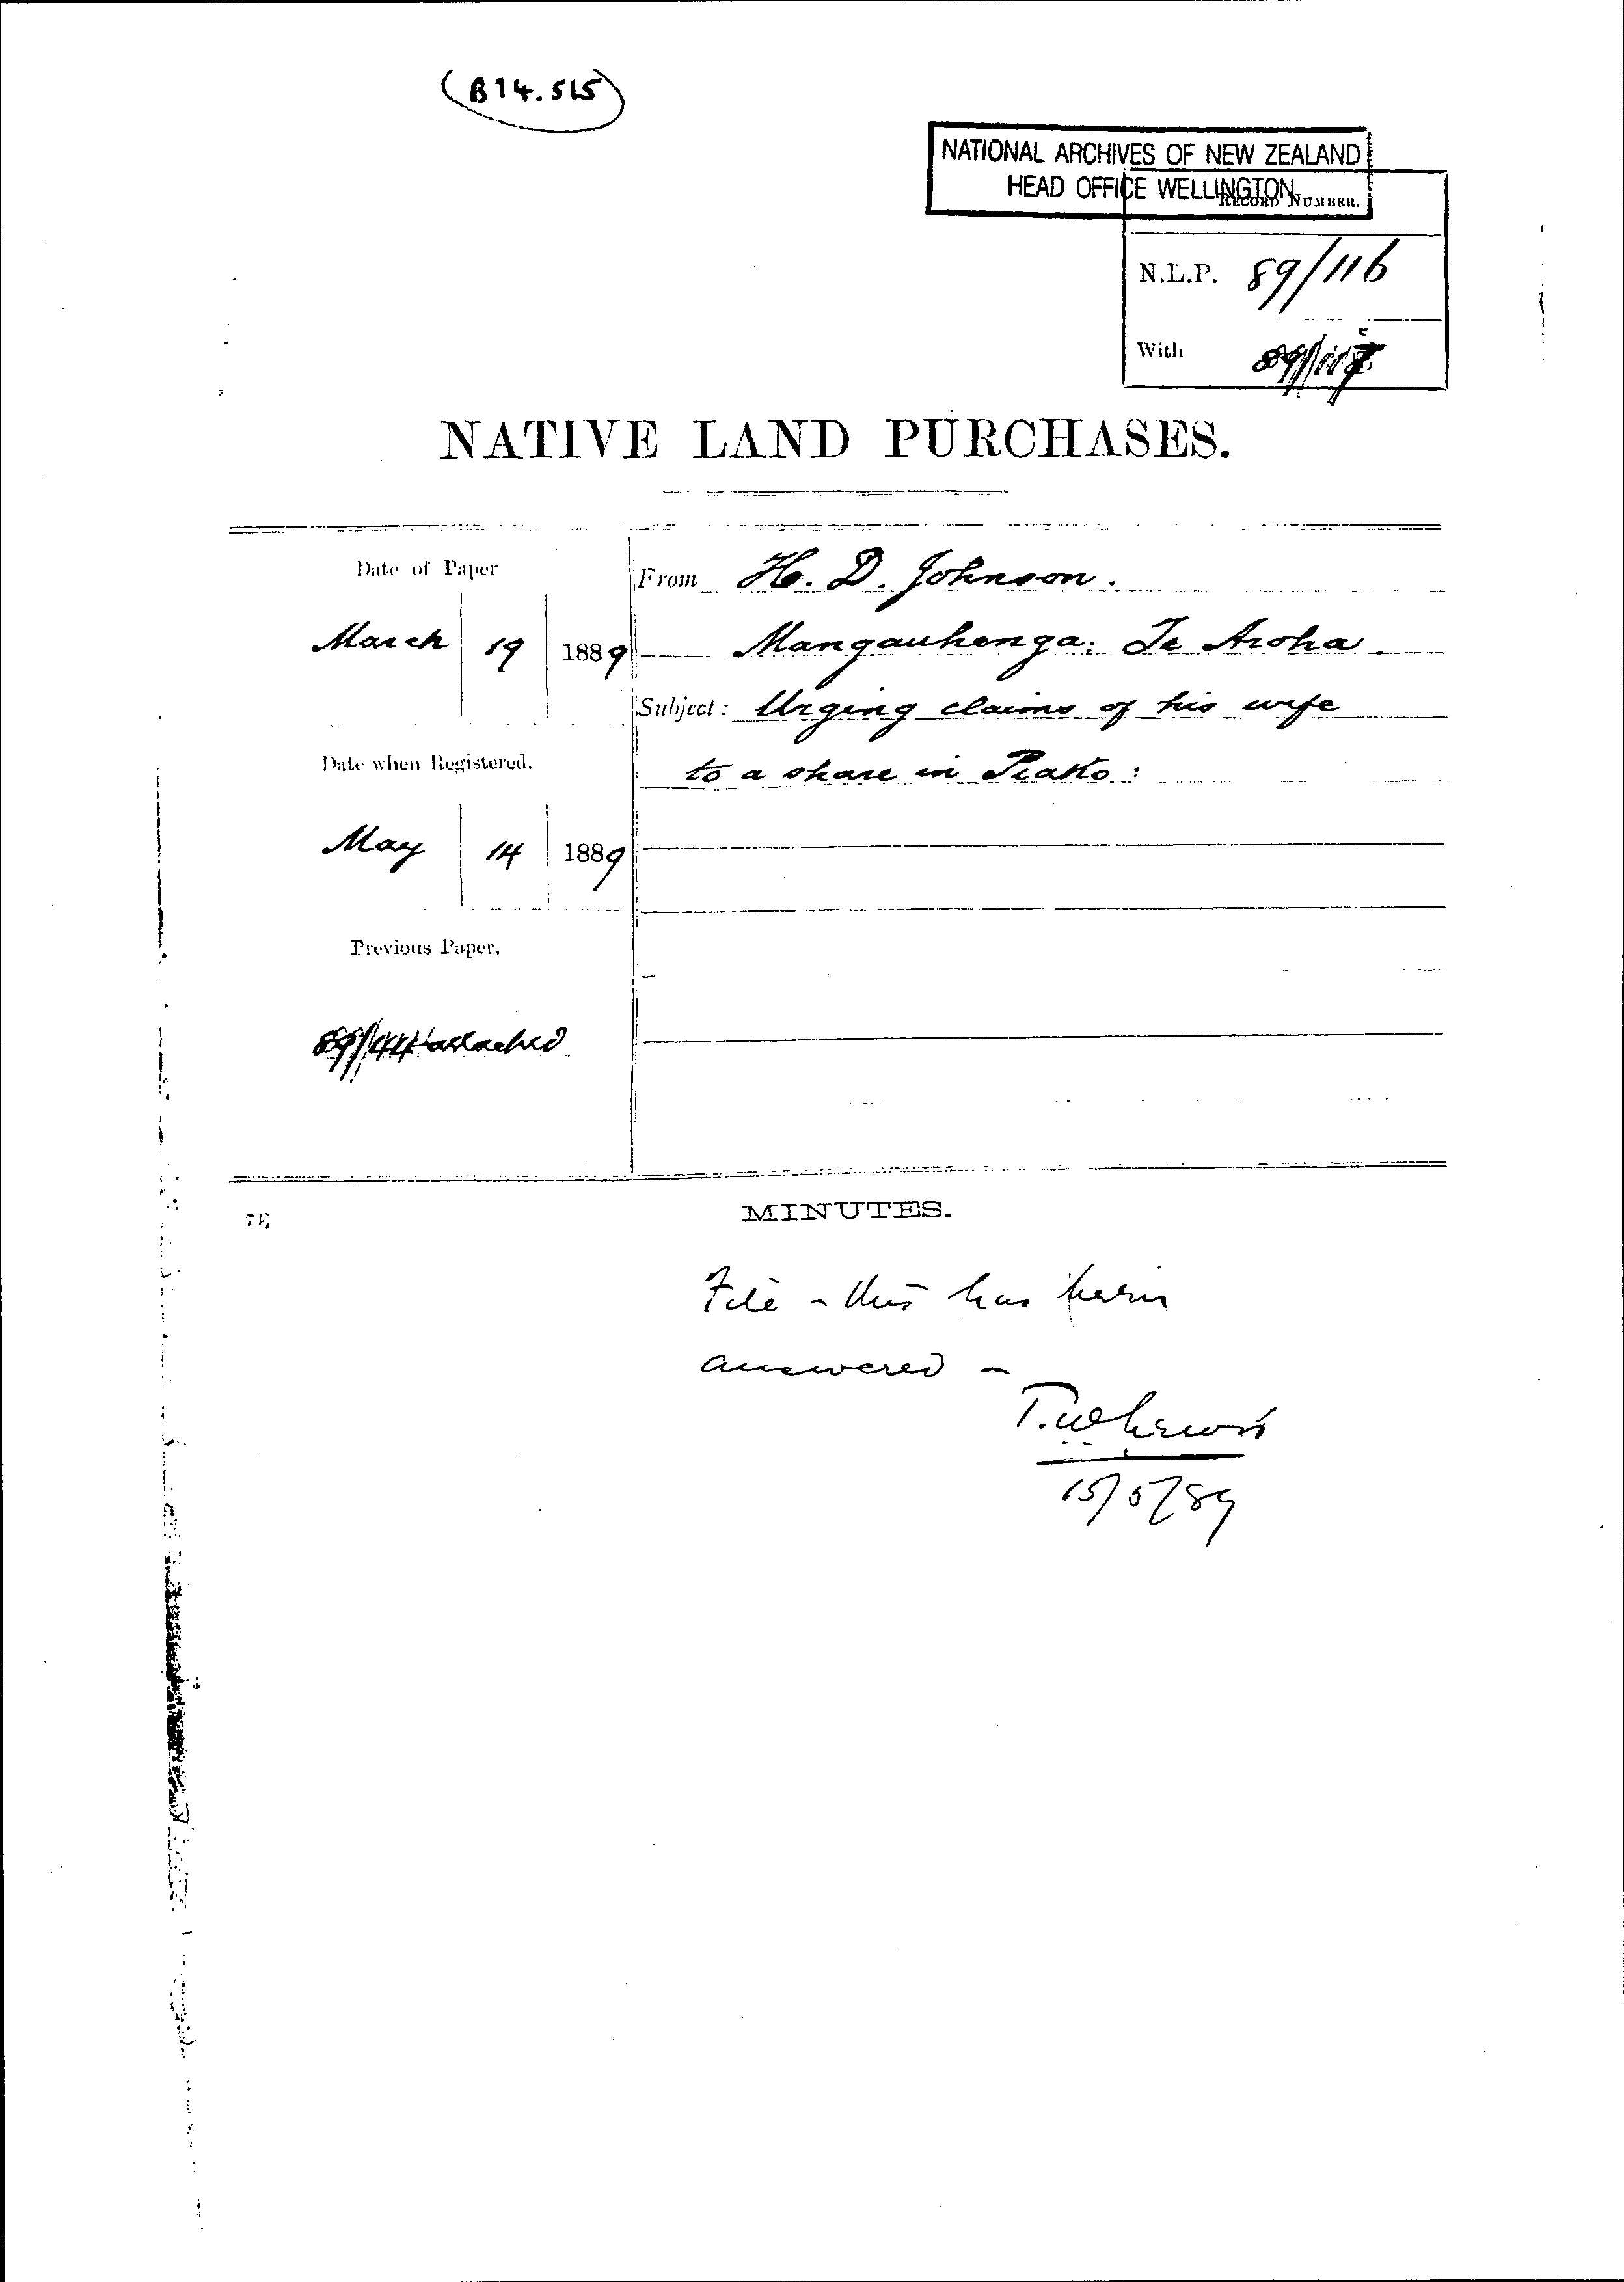 (B14.515)
NATIONAL ARCHIVES OF NEW ZEALAND
HEAD OFFICE WELLINGTON
RECORD NUMBER.
N.L.P. 89/116
With
NATIVE LAND PURCHASES.
Date of Paper
From H. D. Johnson.
March 19 1889
Mangauhenga: Te Aroha
Subject: Urging claims of his wife
Date when Registered.
to a share in Piako:
May 14 1889
Previous Paper.
89/144 attached
MINUTES.
File - this has been
answered -
T. W. Lewis
15/5/89